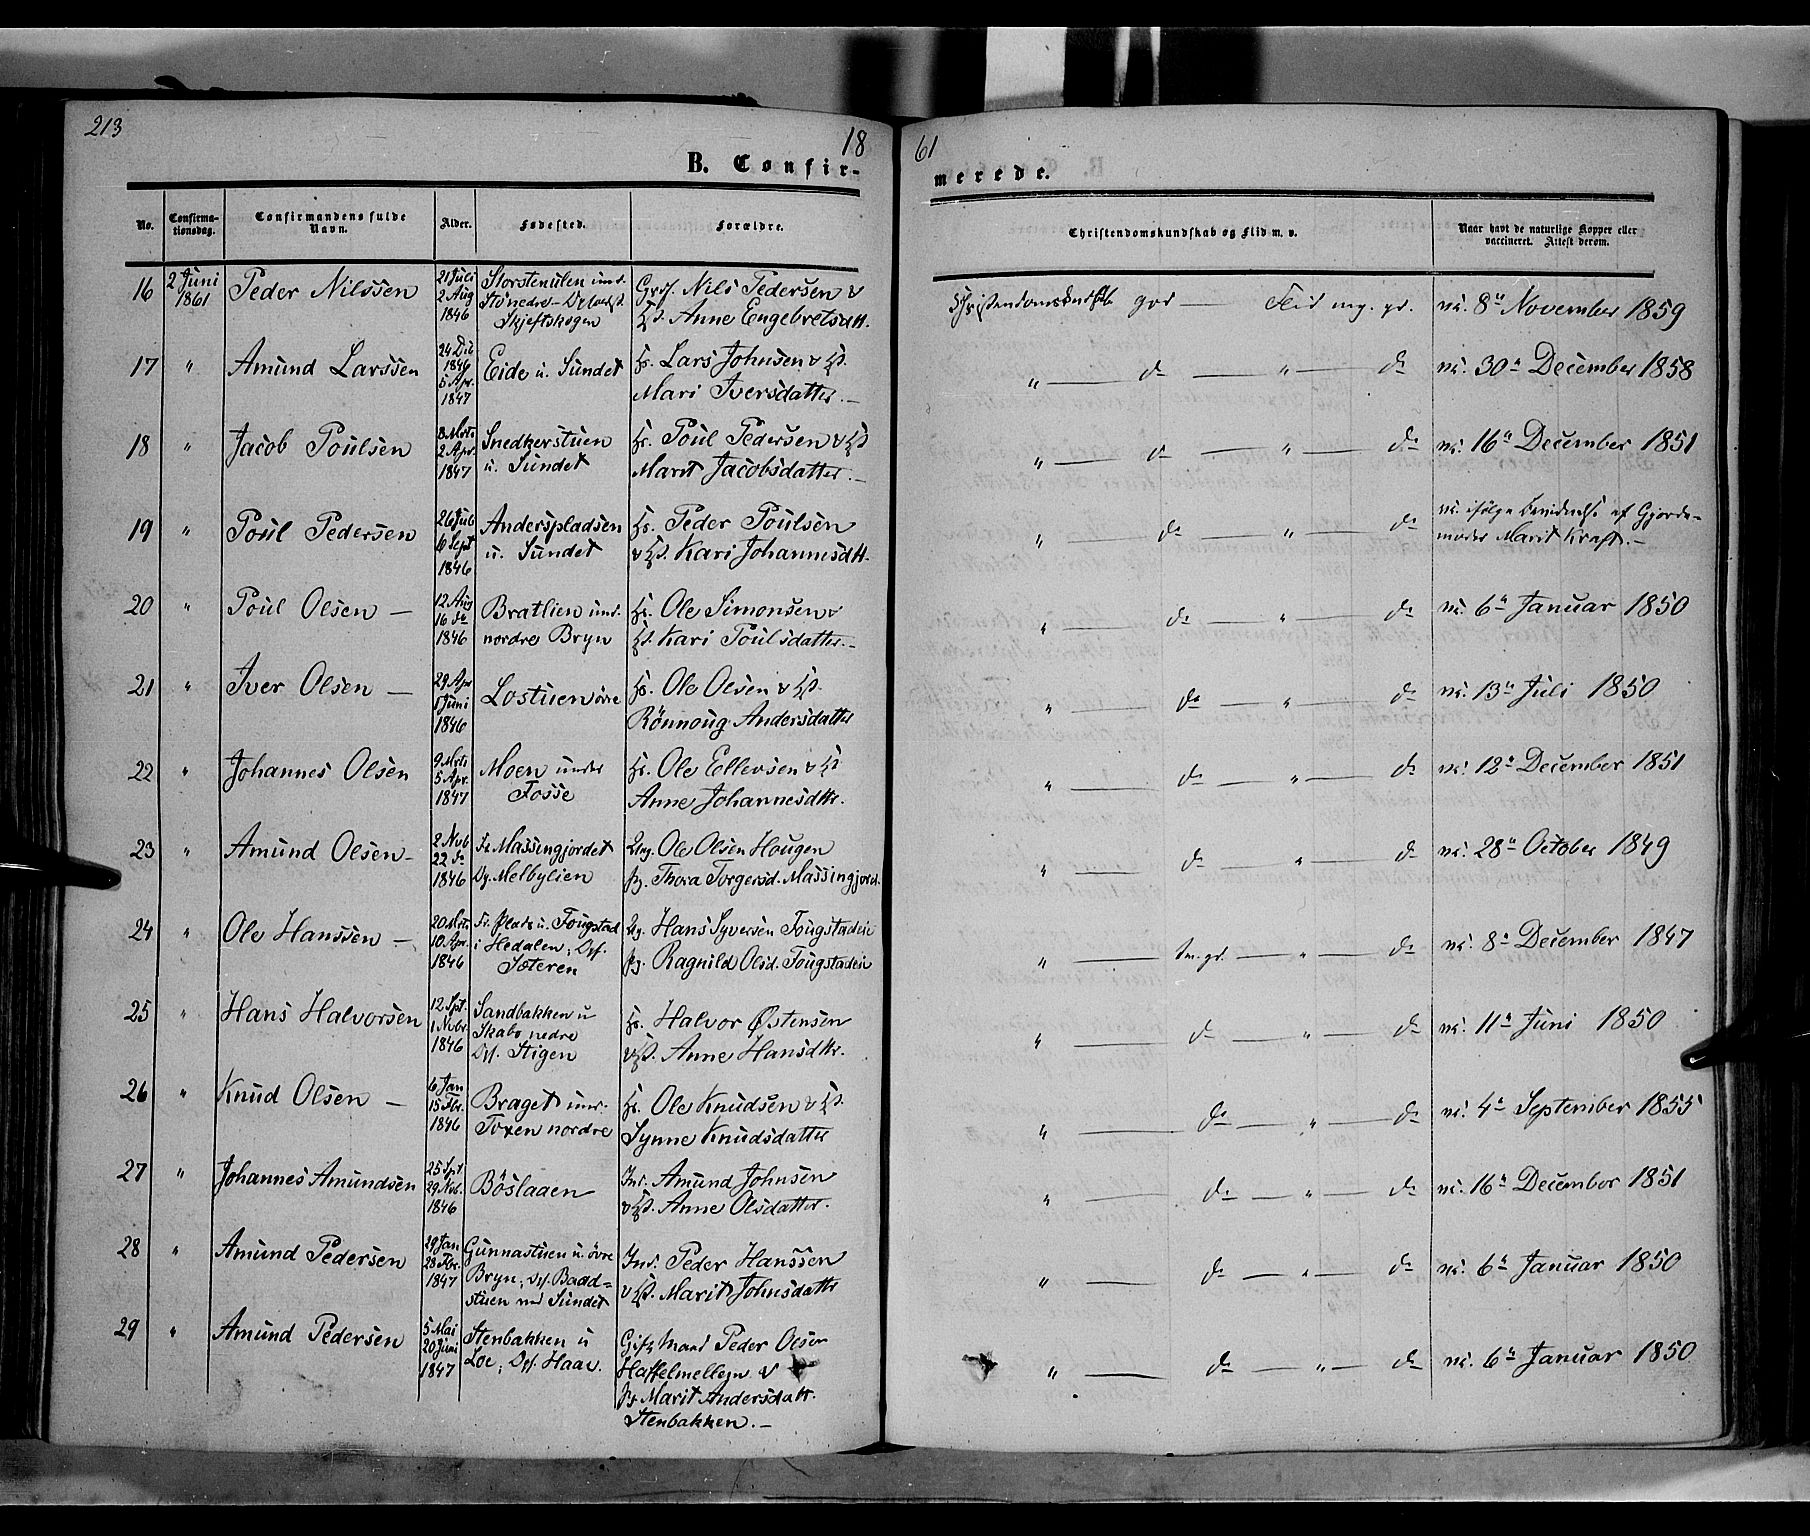 213
18
61
B. Confir-
merede.
No.
Confirma-
tionsdag.
Confirmandens fulde
Navn.
Alder.
Fødested.
Forældre.
Christendomskundskab og Flid m. v.
Naar havt de naturlige Kopper eller
vaccineret. Attest derom.
16 2 Juni 1861 Peder Nilssen 21 Juli 2 Aug 1846 Grdf. Nils Pedersen &
Skjeftskogen Anne Engebretsdtt. god — Flid mg. gd. vc. 8de November 1859
17 " Amund Larssen 24 Dec 1846 5 Apr. 1847 Eide u. Sundet Lars Johnsen &
Mari Iversdatter. — " — do — " — do vc. 30te December 1858
18 " Jacob Poulsen 8 Mrts 2 Apr. 1847 Snedkerstuen
u. Sundet Poul Pedersen &
Marit Jacobsdatter. — " — do — " — do vc. 16de December 1851
19 " Poul Pedersen 26 Juli Sept 1846 Anderspladsen
u. Sundet Peder Poulsen
& Kari Johannesdtt. " — do — " — do vc. ifølge af Gjorde-
moder Marit Kraft. —
20 " Poul Olsen — 12 Aug 16 do 1846 Bratlien und.
nordre Bryn Ole Simonsen &
Kari Poulsdatter. — " — do — " — do vc. 6te Januar 1850
21 " Iver Olsen — 29 Apr 1 Juni 1846 Lostuen øvre Ole Olsen &
Rönnoug Andersdatter " — do — " — do vc. 13de Juli 1850
22 " Johannes Olsen 9 Mrts 5 Apr. 1847 Moen under
Fosse Ole Ellevsen &
Anne Johannesdtr. " — do — " — do vc. 12te December 1851
23 " Amund Olsen — 2 Novb 22 do 1846 Massingjordet
Melbylien Ung. Ole Olsen Hougen
Pg. Thora Torgersd. Massingjord. " — do — " — do vc. 28de October 1849
24 " Ole Hanssen — 20 Mrts 10 Apr. 1846 Fr. Plads u. Fougstad
i Hedalen; Df.
Sæteren Ug. Hans Syversen Fougstadeie
Pg. Ragnild Olsd. Fougstadeie " — tm. gd. — " — do vc. 8de December 1847
25 " Hans Halvorsen 12 Spt. 1 Nvbr. 1846 Sandbakken u
Skabo nedre
Df. Stigen Halvor Østensen
& Anne Hansdtr. " — do — " — do vc. 11te Juni 1850
26 " Knud Olsen — 6 Jan 15 Fbr. 1846 Braget und.
Toxen nordre Ole Knudsen &
Synne Knudsdatter " — do — " — do vc. 4de September 1855
27 " Johannes Amundsen 25 Spt 29 Nvb. 1846 Böslaaen Ind. Amund Johnsen
& Anne Olsdatter. " — do — " — do vc. 16de December 1851
28 " Amund Pedersen 29 Jan 28 Fbr. 1847 Gunnastuen u. øvre
Bryn; Df. Badd-
stuen ved Sundet Ind. Peder Hanssen
& Marit Johnsdatter " — do — " — do vc. 6te Januar 1850
29 " Amund Pedersen 5 Mai 20 Juni 1847 Stenbakken u
Loe; Df. Haav. Gift Mand Peder Olsen
Haffelmellejn &
Pg. Marit Andersdatt.
Stenbakken. — " — do — " — do vc. 6te Januar 1850